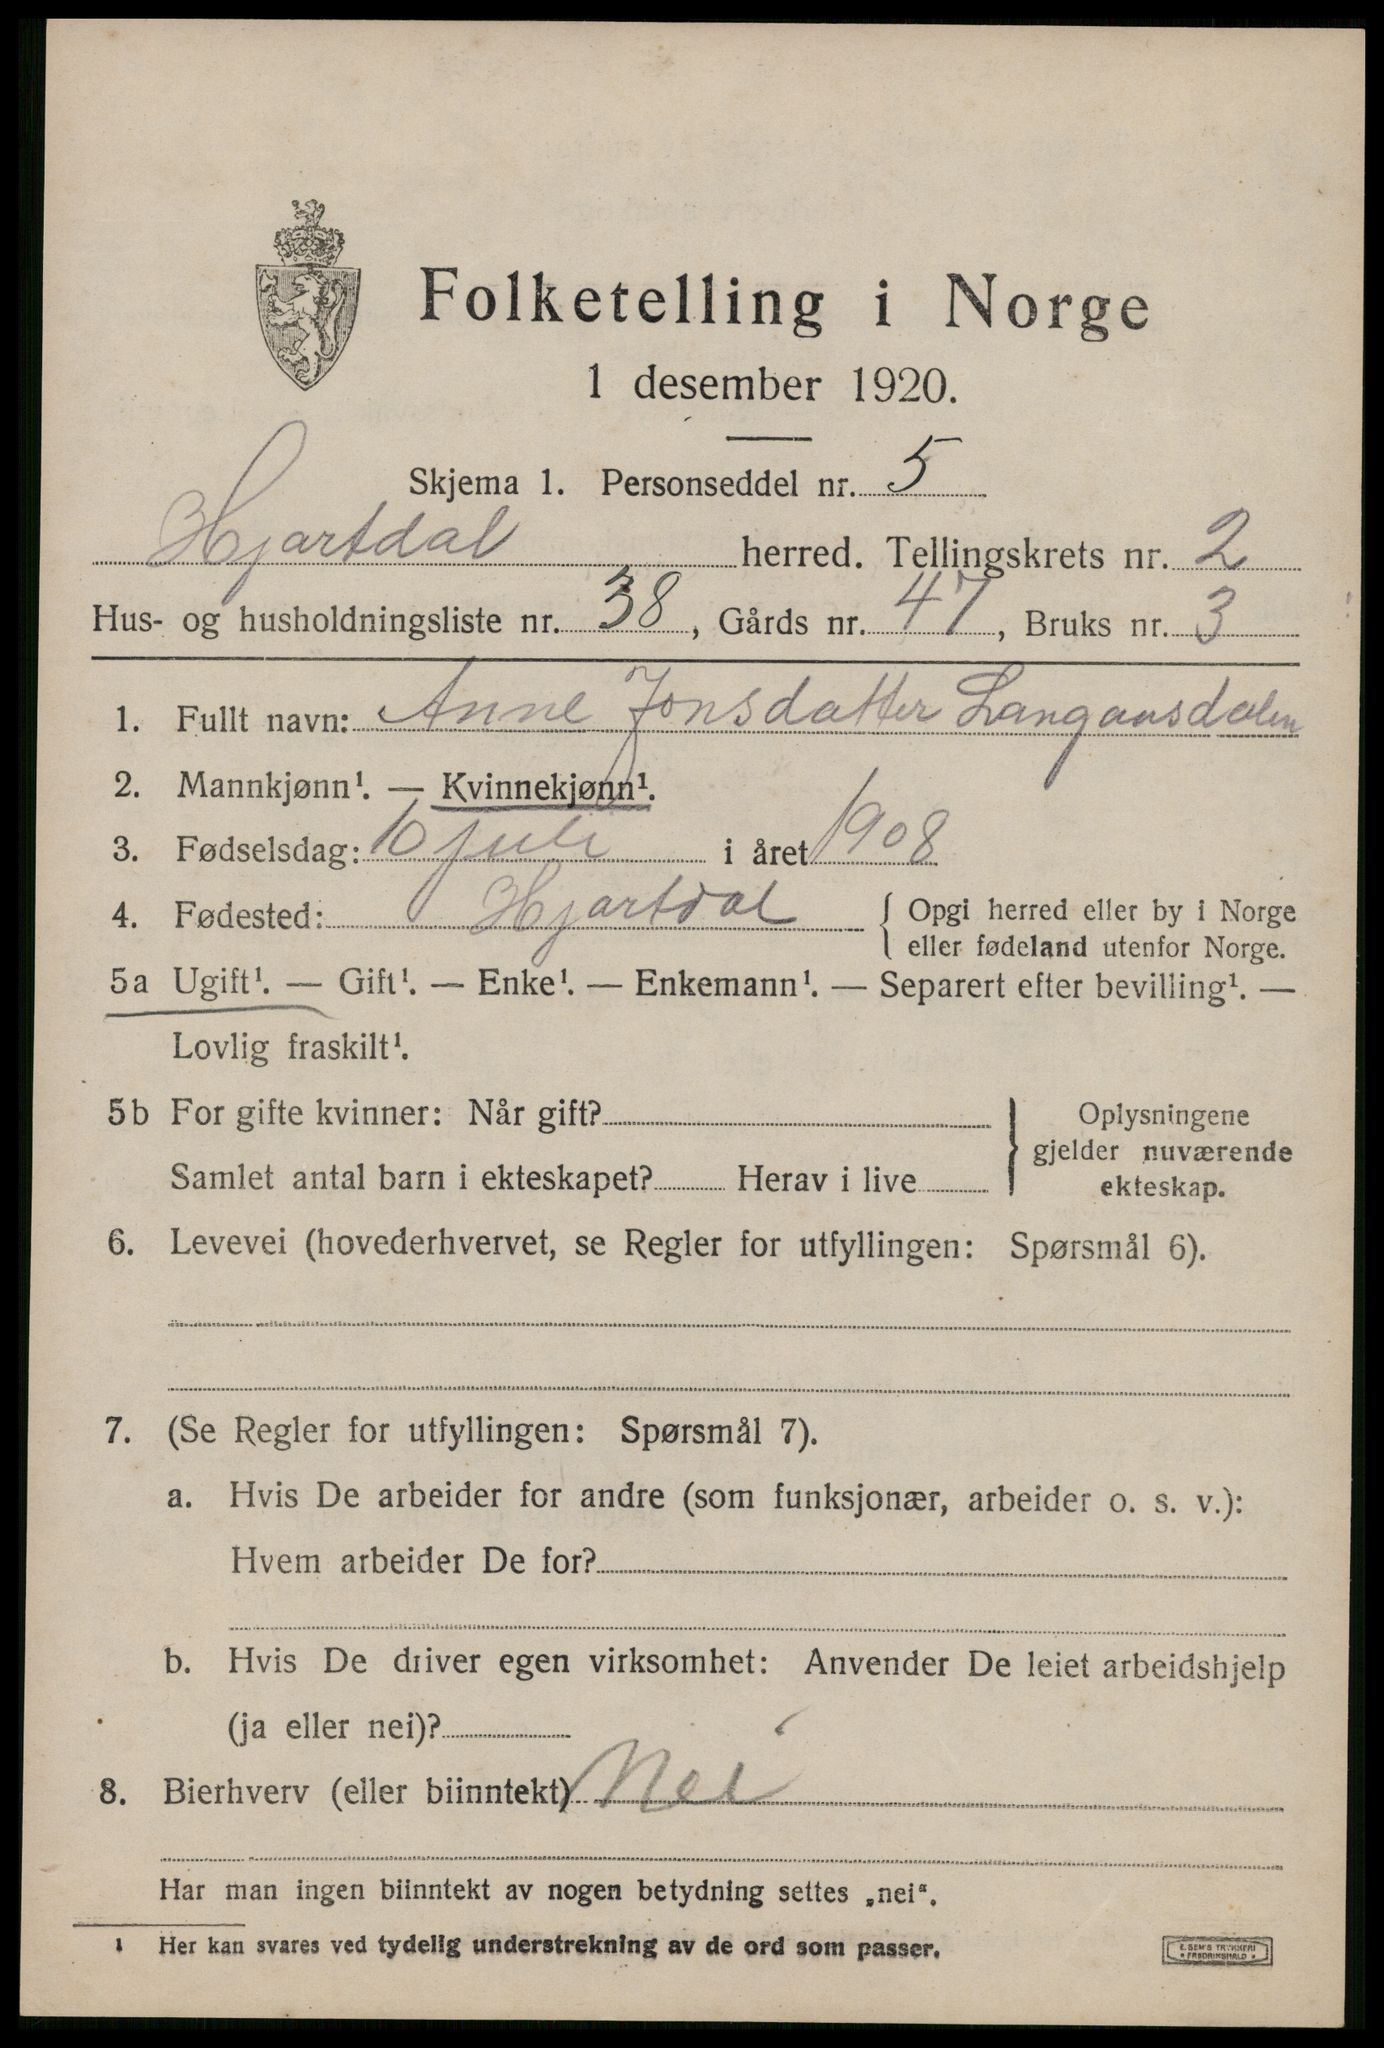 Folketelling i Norge
1 desember 1920.
Skjema 1. Personseddel nr. 5
Hjartdal herred. Tellingskrets nr. 2
Hus- og husholdningsliste nr. 38, Gårds nr. 47, Bruks nr. 3
1. Fullt navn: Anne Jonsdatter Langaasdalen
2. Mannkjønn¹. — Kvinnekjønn¹.
3. Fødselsdag: 10 juli i året 1908
4. Fødested: Hjartdal { Opgi herred eller by i Norge
eller fødeland utenfor Norge.
5a Ugift¹. — Gift¹. — Enke¹. — Enkemann¹. — Separert efter bevilling¹. —
Lovlig fraskilt¹.
5b For gifte kvinner: Når gift? } Oplysningene
gjelder nuværende
Samlet antal barn i ekteskapet? Herav i live
ekteskap.
6. Levevei (hovederhvervet, se Regler for utfyllingen: Spørsmål 6).
7. (Se Regler for utfyllingen: Spørsmål 7).
a. Hvis De arbeider for andre (som funksjonær, arbeider o. s. v.):
Hvem arbeider De for?
b. Hvis De driver egen virksomhet: Anvender De leiet arbeidshjelp
(ja eller nei)?
8. Bierhverv (eller biinntekt) Nei
Har man ingen biinntekt av nogen betydning settes „nei“.
¹ Her kan svares ved tydelig understrekning av de ord som passer.
E. SEM'S TRYKKERI
* FREDRIKSHALD *